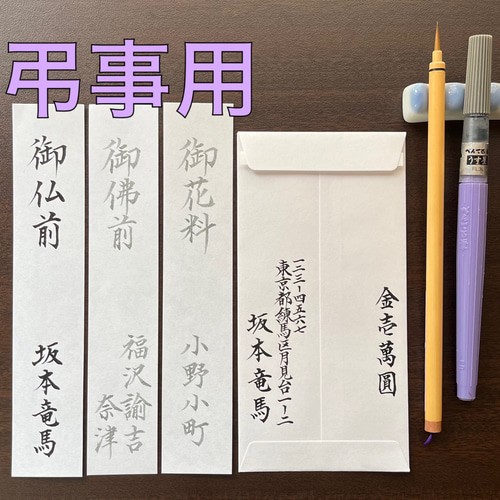 弔事用
御仏前
坂本竜馬
御佛前
福沢諭吉
奈津
御花料
小野小町
金壱萬圓
一二三ー四五六七
東京都練馬区月見台一ー二
坂本竜馬
ぺんてる
うす墨